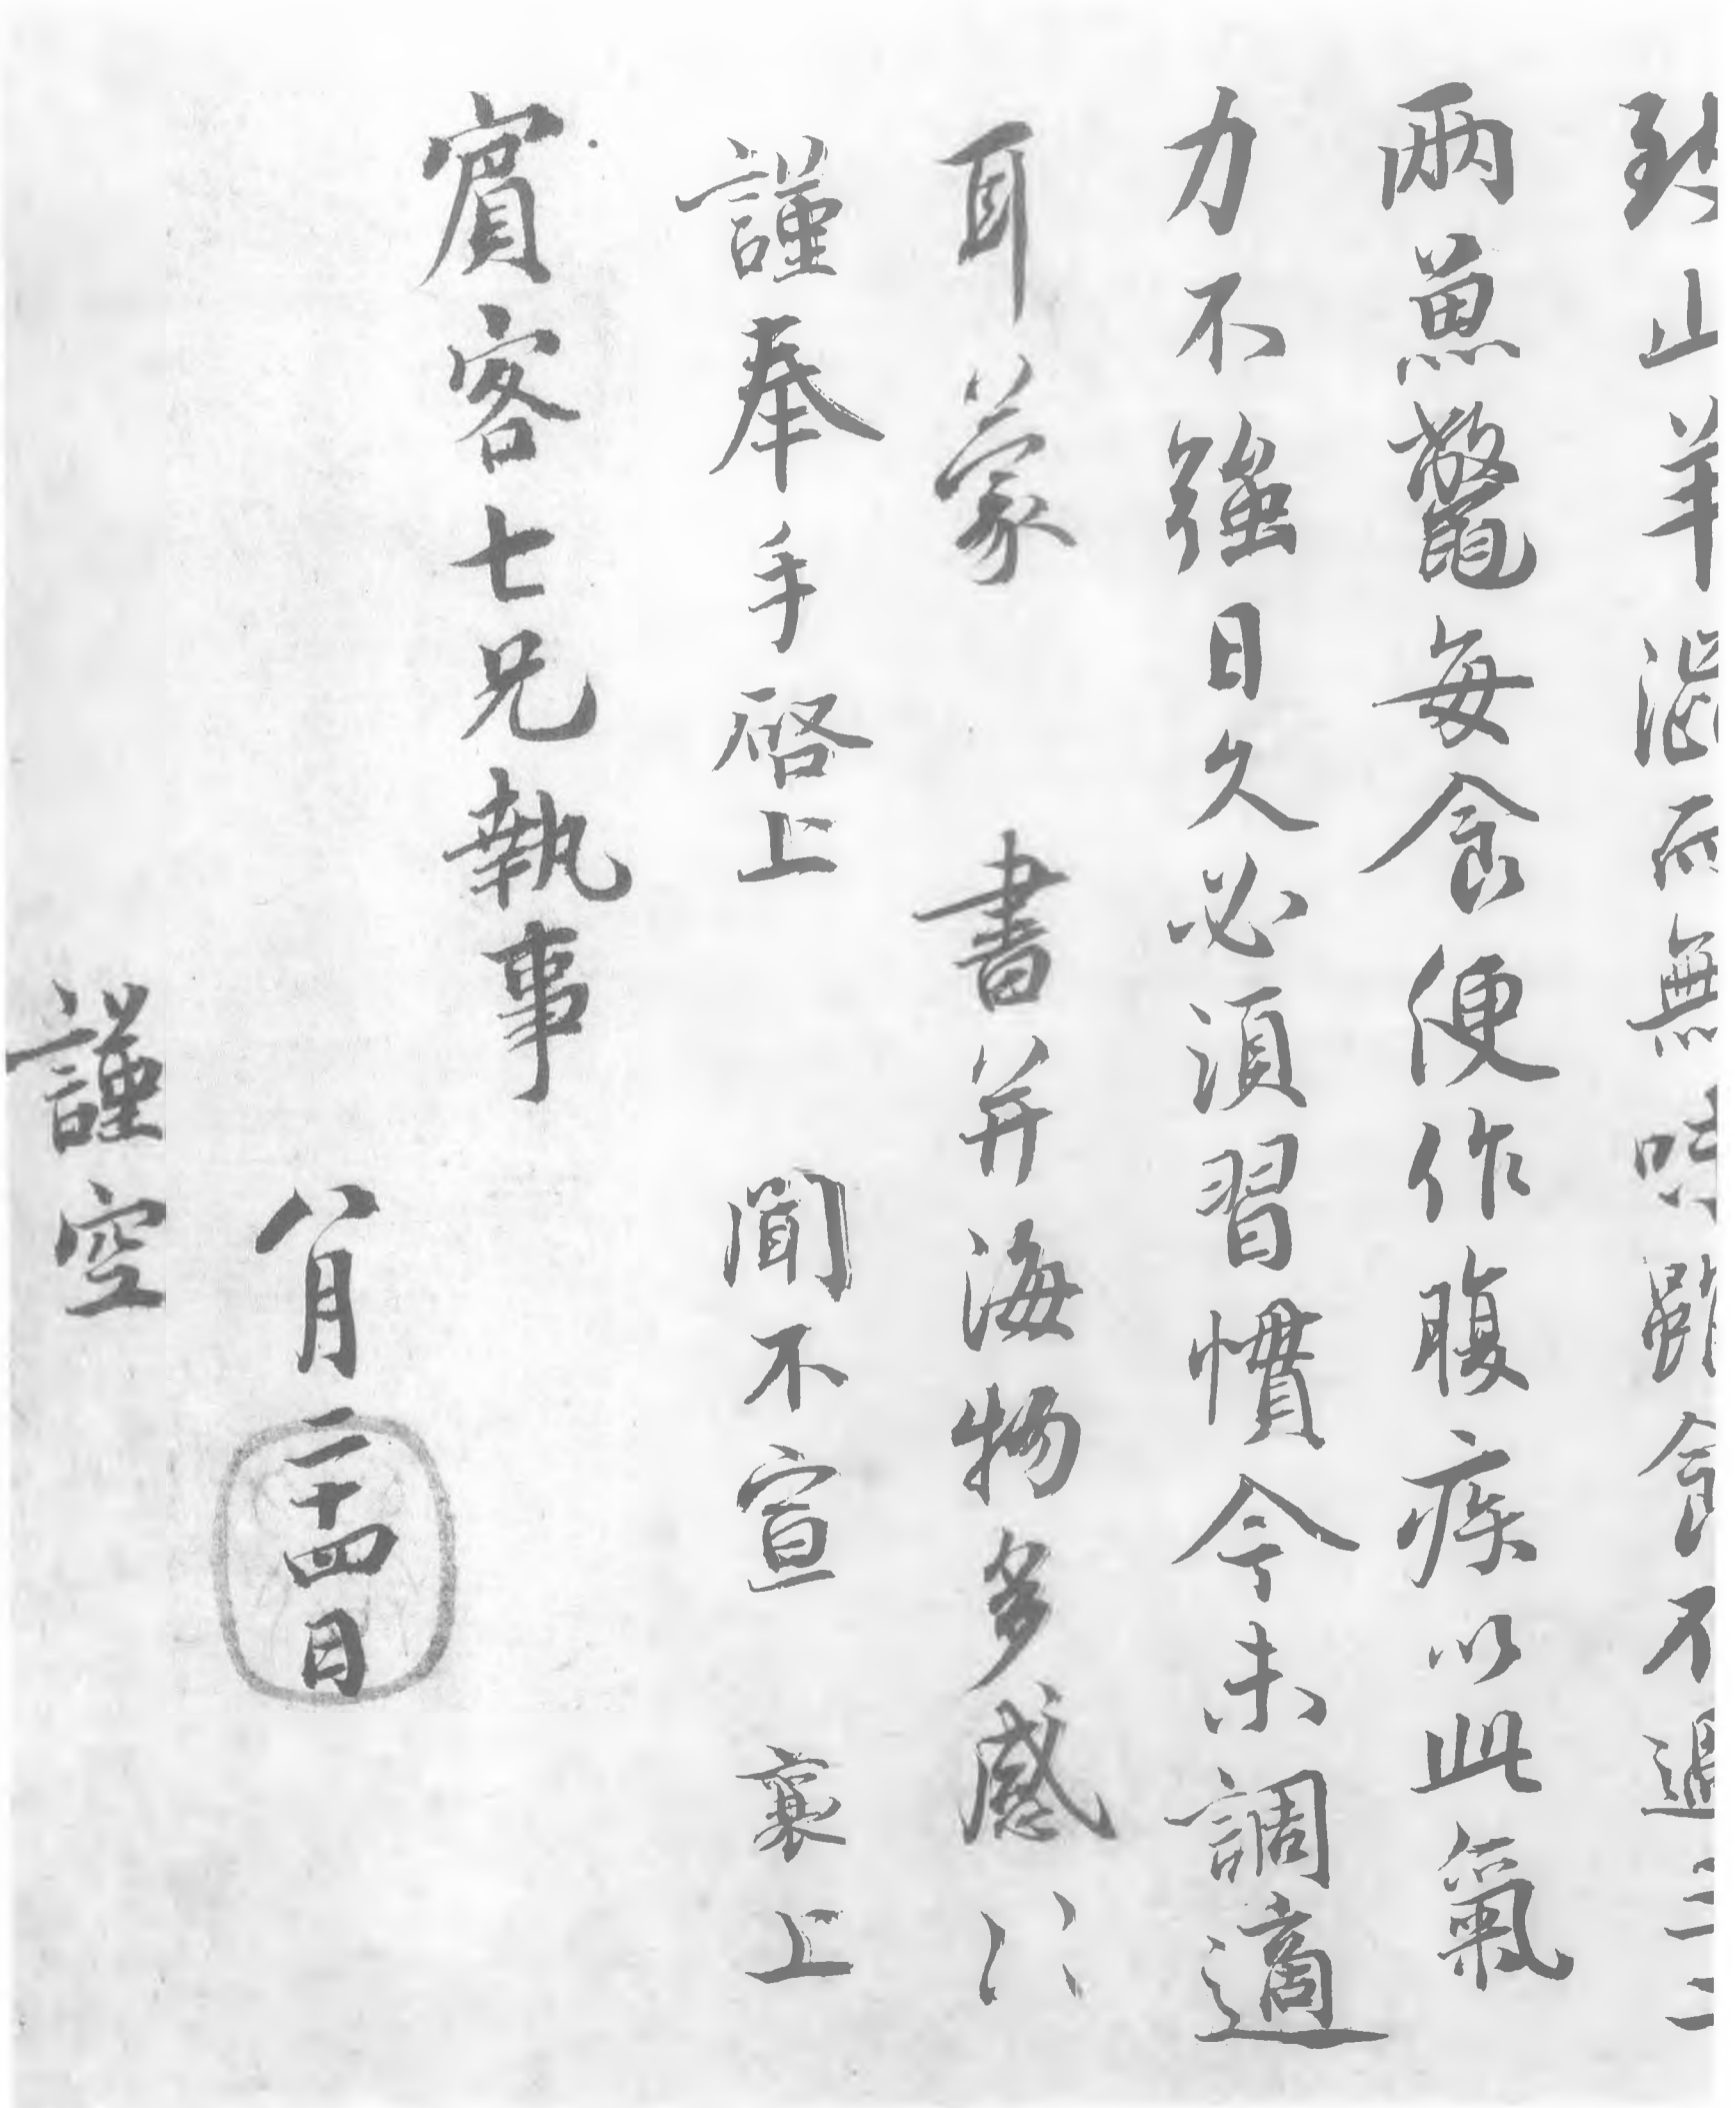 到山羊澀而無味雖食不過三二
兩魚鼈每食便作腹疾以此氣
力不強日久必須習慣今未調適
耳蒙　書并海物多感〻
謹奉手啓上　聞不宣　襄上
賓客七兄執事
八月二十四日
謹空